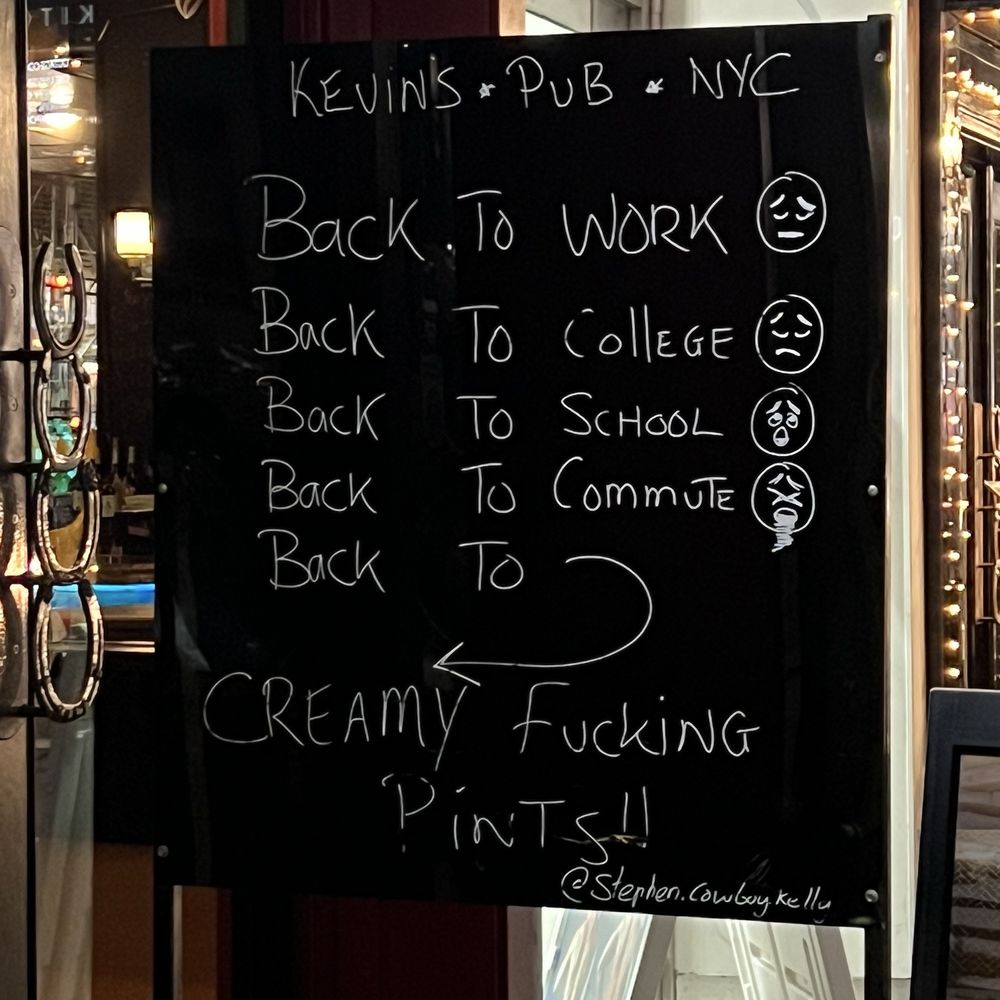 KEVIN'S * PUB * NYC
Back To WORK
Back To CollEGE
Back To SCHOOL
Back To CommuTE
Back To
CREAMY FuckiNG
PiNTS!!
@Stephen.cowboy.kelly